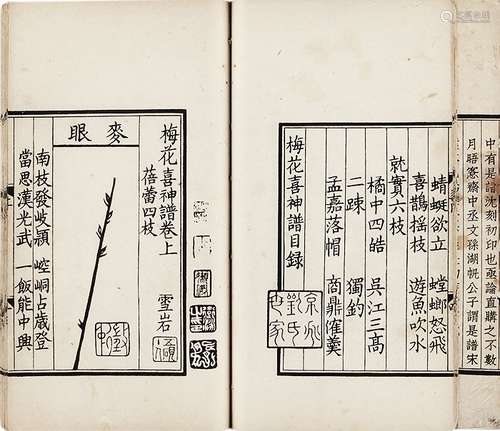 中有是譜沈刻初印也亟論直購之不數
月晤愙齋中丞文孫湖帆公子謂是譜宋
蜻蜓欲立 螳螂怒飛
喜鵲搖枝 遊魚吹水
就實六枝
橘中四皓 吳江三高
二疎 獨釣
孟嘉落帽 商鼎催羹
梅花喜神譜目錄
京兆
劉氏
世家
梅花喜神譜卷上
蓓蕾四枝 雪岩
麥眼
南枝發岐穎 崆峒占歲登
當思漢光武 一飯能中興